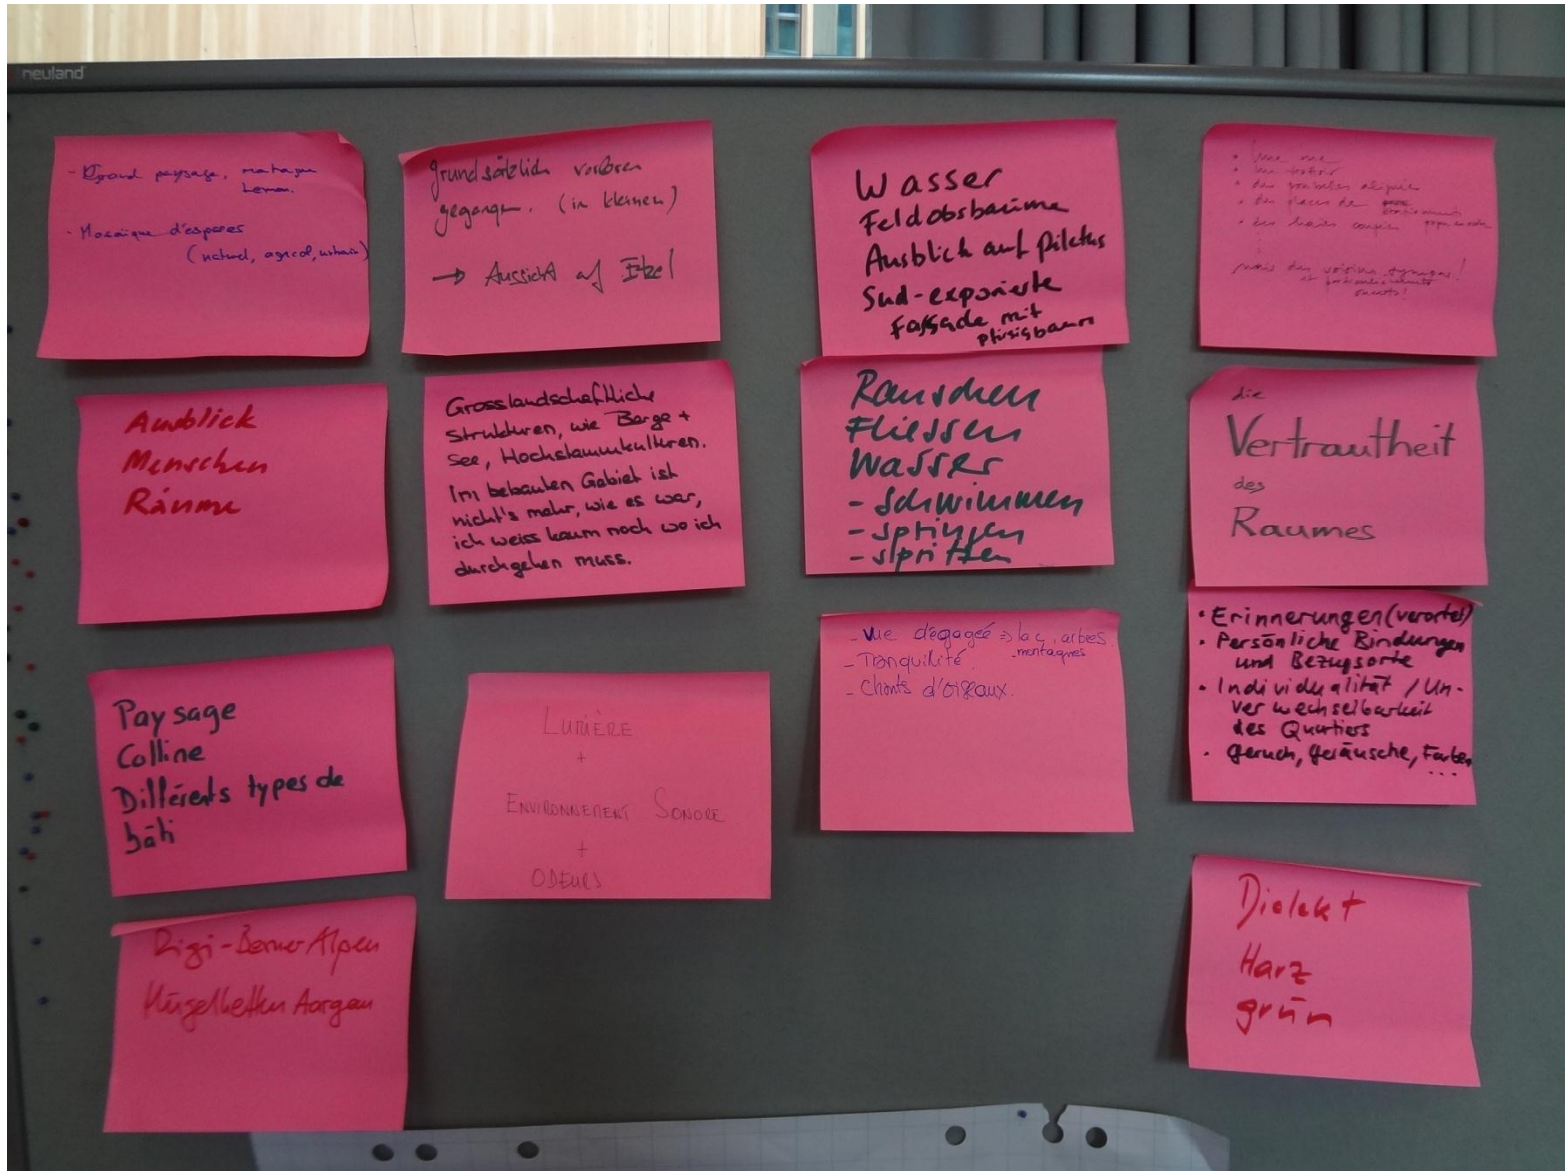 neuland
- Grand paysage, montagne
Leman.
- Mosaïque d'espaces
(naturel, agricol, urbain)
Ausblick
Menschen
Räume
Paysage
Colline
Différents types de
bâti
Rigi-Berner Alpen
Hügelketten Aargau
grundsätzlich verloren
gegangen. (in kleinen)
→ Aussicht auf Etzel
Grosslandschaftliche
Strukturen, wie Berge +
See, Hochstammkulturen.
Im bebauten Gebiet ist
nicht's mehr, wie es war,
ich weiss kaum noch wo ich
durchgehen muss.
LUMIÈRE
+
ENVIRONNEMENT SONORE
+
ODEURS
Wasser
Feldobsbäume
Ausblick auf Pilatus
Süd-exponierte
Fassade mit
pfirsigbaum
Rauschen
Fliessen
Wasser
- schwimmen
- springen
- spritzen
- Vue dégagée ⇒ lac, arbres
montagnes
- Tranquilité
- Chants d'oiseaux.
• Une rue
• un trottoir
• des places de
• des haies
mais des voisins sympas!
die
Vertrautheit
des
Raumes
• Erinnerungen (verortet)
• Persönliche Bindungen
und Bezugsorte
• Individualität / Un-
verwechselbarkeit
des Quartiers
• Geruch, Geräusche, Farben
...
Dialekt
Harz
grün